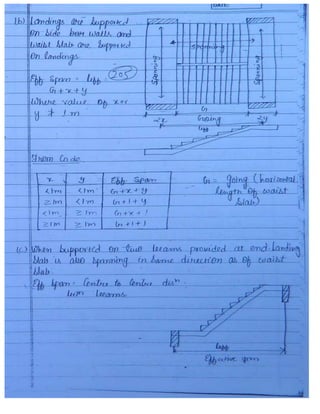 (b) Landings are supported
on side beam walls and
waist slab are supported
on landings.
Eff span = leff
G+x+y
205
Where value of x or
y ≯ 1m
spanning
Spanning
Spanning
G
Going
2x
2y
leff
From Code
x y Eff Span
<1m <1m G+x+y
≥1m <1m G+1+y
<1m ≥1m G+x+1
≥1m ≥1m G+1+1
G = going (horizontal
length of waist
slab)
(c) When supported on two beams provided at end landing
slab is also spanning in same direction as of waist
slab.
Eff span = Centre to Centre dis
beams
leff
Effective span